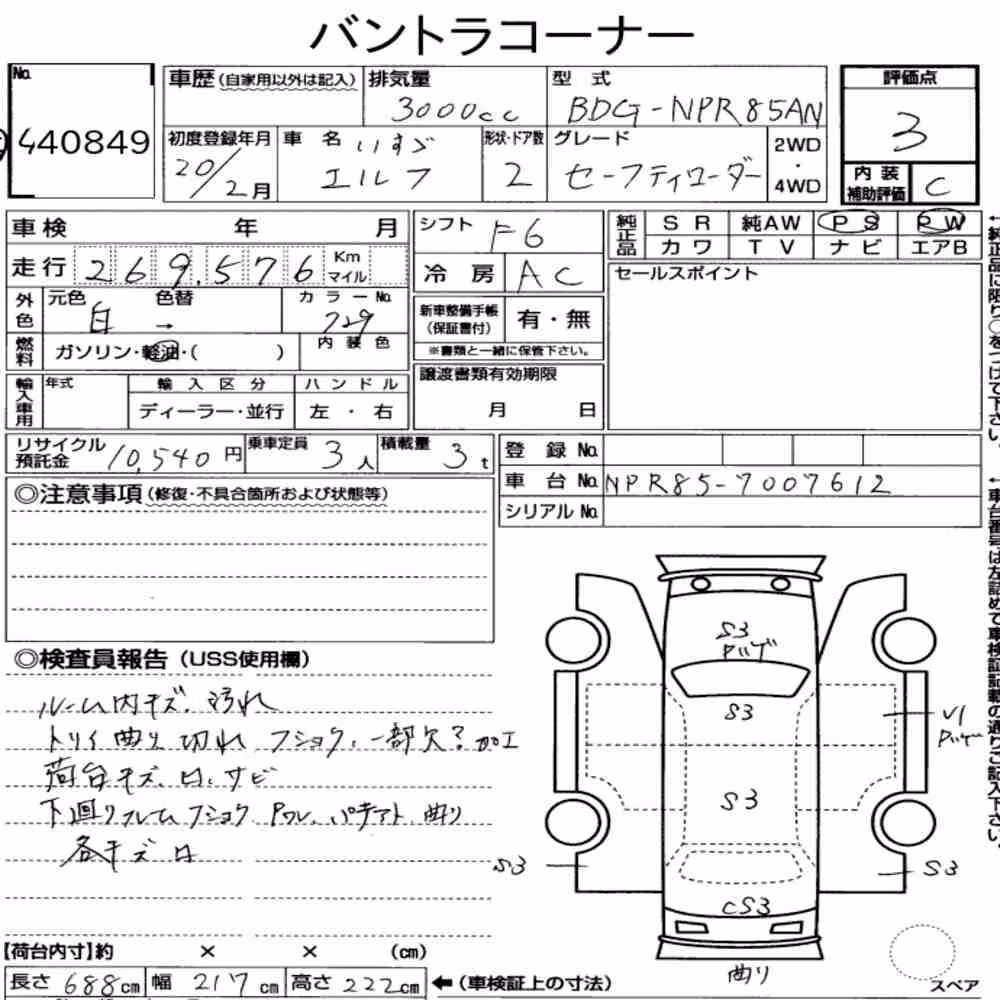 バントラコーナー
No. 440849
車歴(自家用以外は記入)
排気量 3000cc
型式 BDG-NPR85AN
評価点 3
初度登録年月 20/2月
車名 いすゞ エルフ
形状・ドア数 2
グレード セーフティローダー
2WD・4WD
内装補助評価 C
車検 年 月
シフト F6
純正品 SR 純AW PS PW
カワ TV ナビ エアB
走行 269,576 Km マイル
冷房 AC
セールスポイント
外色 元色 白 色替 → カラーNo. 729
新車整備手帳(保証書付) 有・無
※書類と一緒に保管下さい。
燃料 ガソリン・軽油・( )
内装色
輸入車用 年式 輸入区分 ハンドル
ディーラー・並行 左・右
譲渡書類有効期限
月 日
リサイクル預託金 10,540円
乗車定員 3人
積載量 3t
登録No.
車台No. NPR85-7007612
シリアルNo.
◎注意事項(修復・不具合箇所および状態等)
◎検査員報告(USS使用欄)
ルーム内キズ、汚れ
トリイ曲り 切れ フショク、一部欠?加工
荷台キズ、凹、サビ
下廻りフレームフショク
曲り
各キズ凹
S3
S3
S3
S3
S3
CS3
曲り
スペア
【荷台内寸】約 × × (cm)
長さ 688cm 幅 217 高さ 222cm ←(車検証上の寸法)
←純正品に限り○をつけて下さい。
←車台番号は左詰めで車検証記載の通りご記入下さい。